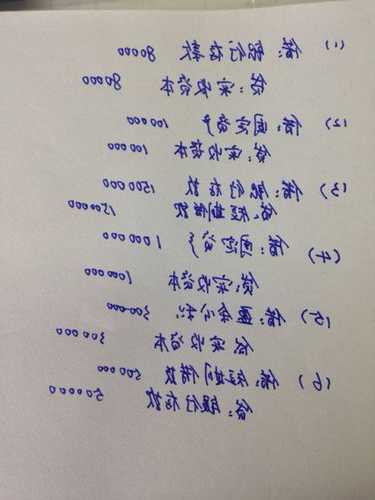 (1) 借：银行存款 80000
贷：实收资本 80000
(2) 借：固定资产 100000
贷：实收资本 100000
(3) 借：银行存款 1500000
贷：短期借款 1500000
(4) 借：固定资产 1000000
贷：实收资本 1000000
(5) 借：盈余公积 300000
贷：实收资本 300000
(6) 借：短期借款 500000
贷：银行存款 500000